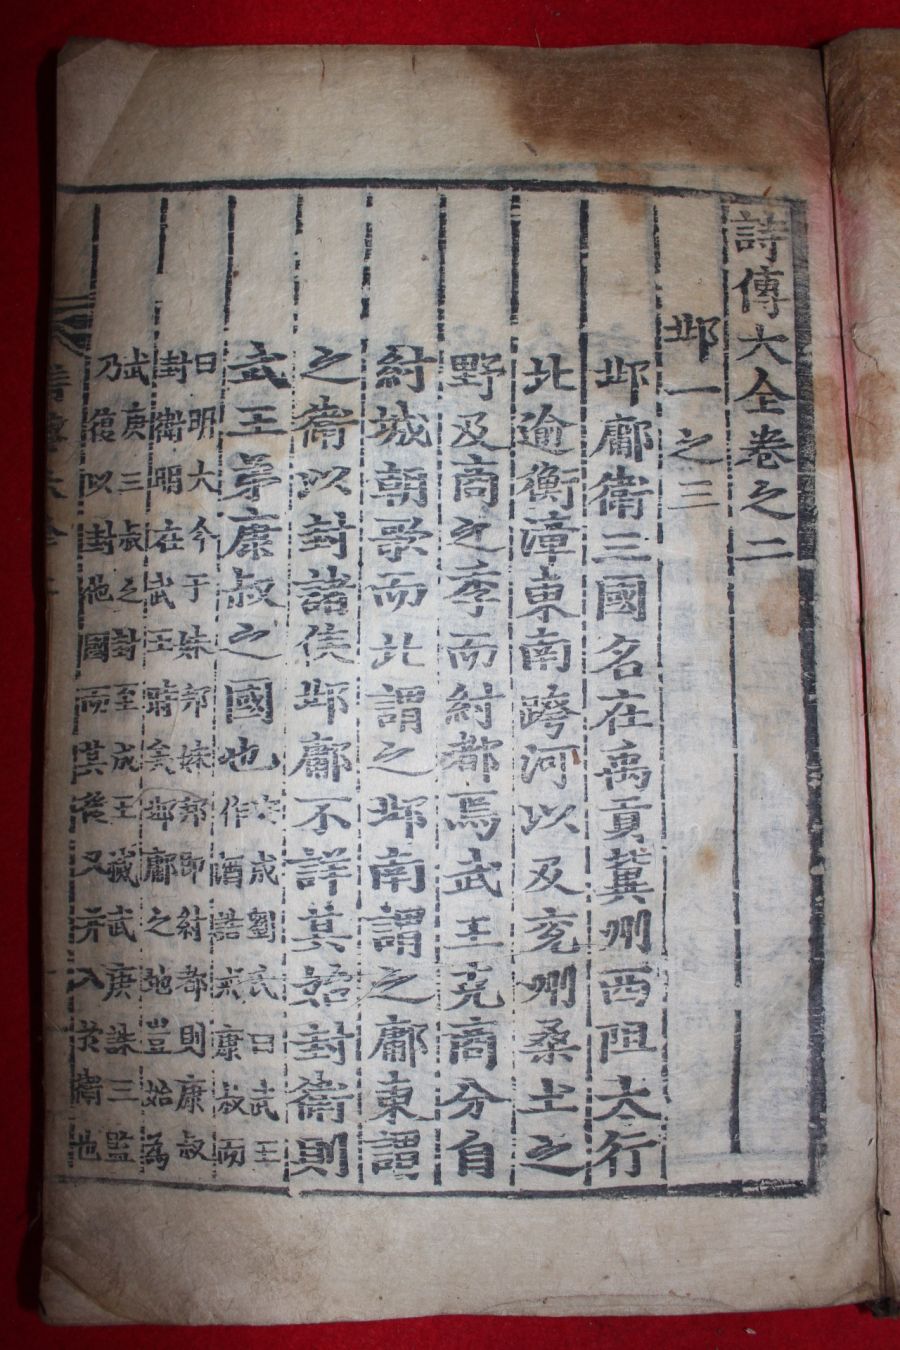 詩傳大全卷之二
邶一之三
邶鄘衛三國名在禹貢冀州西阻太行
北逾衡漳東南跨河以及兗州桑土之
野及商之季而紂都焉武王克商分自
紂城朝歌而北謂之邶南謂之鄘東謂
之衛以封諸侯邶鄘不詳其始封衛則
武王弟康叔之國也
安成劉氏曰武王
作酒誥戒康叔而
曰明大命于妹邦妹邦即紂都則康叔
封衛明在武王時矣邶鄘之地豈始為
武庚三叔之封至成王滅武庚誅三監
乃復以封他國而其後又幷入於衛也